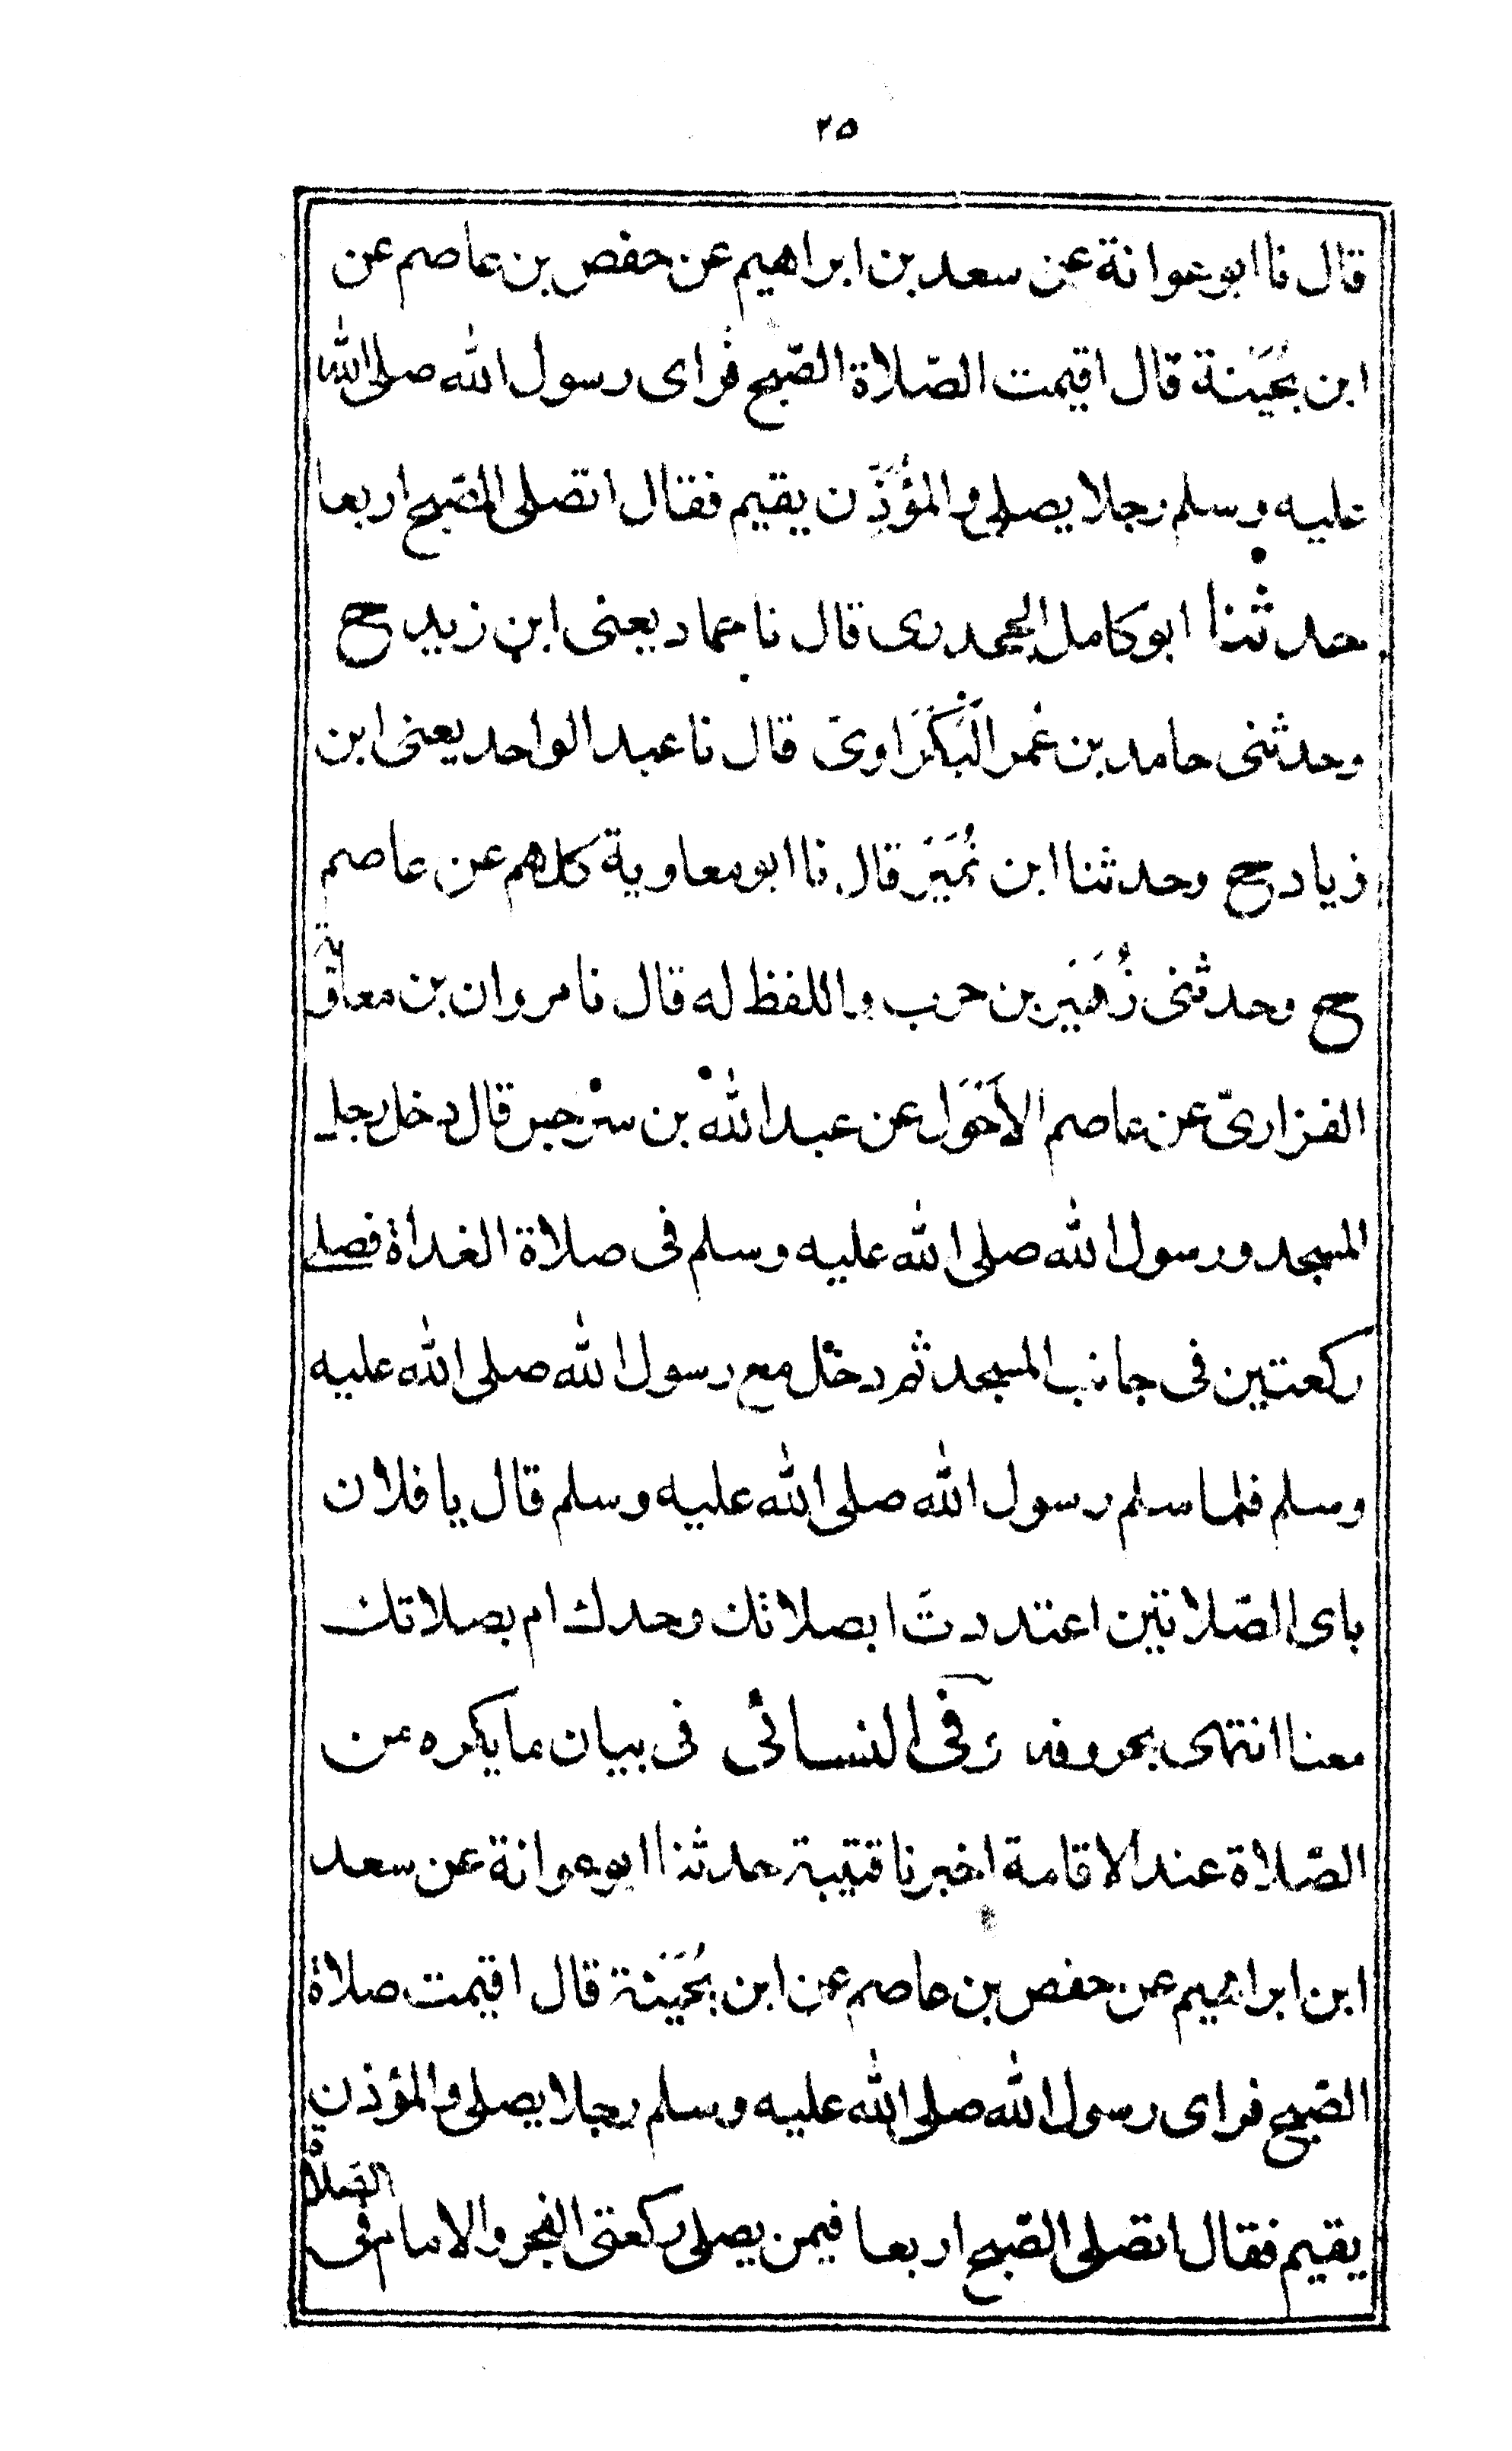 ٢٥
قال نا ابو عوانة عن سعد بن ابراهيم عن حفص بن عاصم عن
ابن بُحَيْنة قال اقيمت الصّلاة الصّبح فراى رسول الله صلى الله
عليه وسلم رجلا يصلى والمؤُذِّن يقيم فقال اتصلى الصّبح اربعا
حدثنا ابو كامل الجحدرى قال نا حماد يعنى ابن زيد ح
وحدثنى حامد بن عُمر البَكْرَاوىّ قال نا عبد الواحد يعنى ابن
زياد ح وحدثنا ابن نُمَيْر قال نا ابو معاوية كلهم عن عاصم
ح وحدثنى زُهَيْر بن حرب واللفظ له قال نا مروان بن معاوية
الفزارىّ عن عاصم الاَحْوَل عن عبد الله بن سرْجس قال دخل رجل
المسجد ورسول الله صلى الله عليه وسلم فى صلاة الغداة فصلى
ركعتين فى جانب المسجد ثم دخل مع رسول الله صلى الله عليه
وسلم فلما سلم رسول الله صلى الله عليه وسلم قال يا فلان
باى الصّلاتين اعتددتَ ابصلاتك وحدك ام بصلاتك
معنا انتهى بحروفه وفى النسائى فى بيان ما يكره من
الصّلاة عند الاقامة اخبرنا قتيبة حدثنا ابو عوانة عن سعد
ابن ابراهيم عن حفص بن عاصم عن ابن بُحَيْنة قال اقيمت صلاة
الصّبح فراى رسول الله صلى الله عليه وسلم رجلا يصلى والمؤذن
يقيم فقال اتصلى الصّبح اربعا فيمن يصلى ركعتى الفجر والامام فى الصّلاة